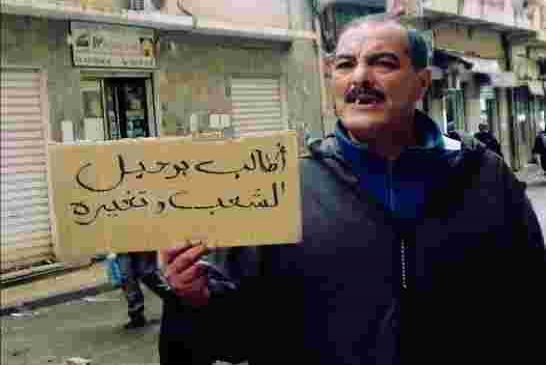 أطالب برحيل
الشعب وتغييره